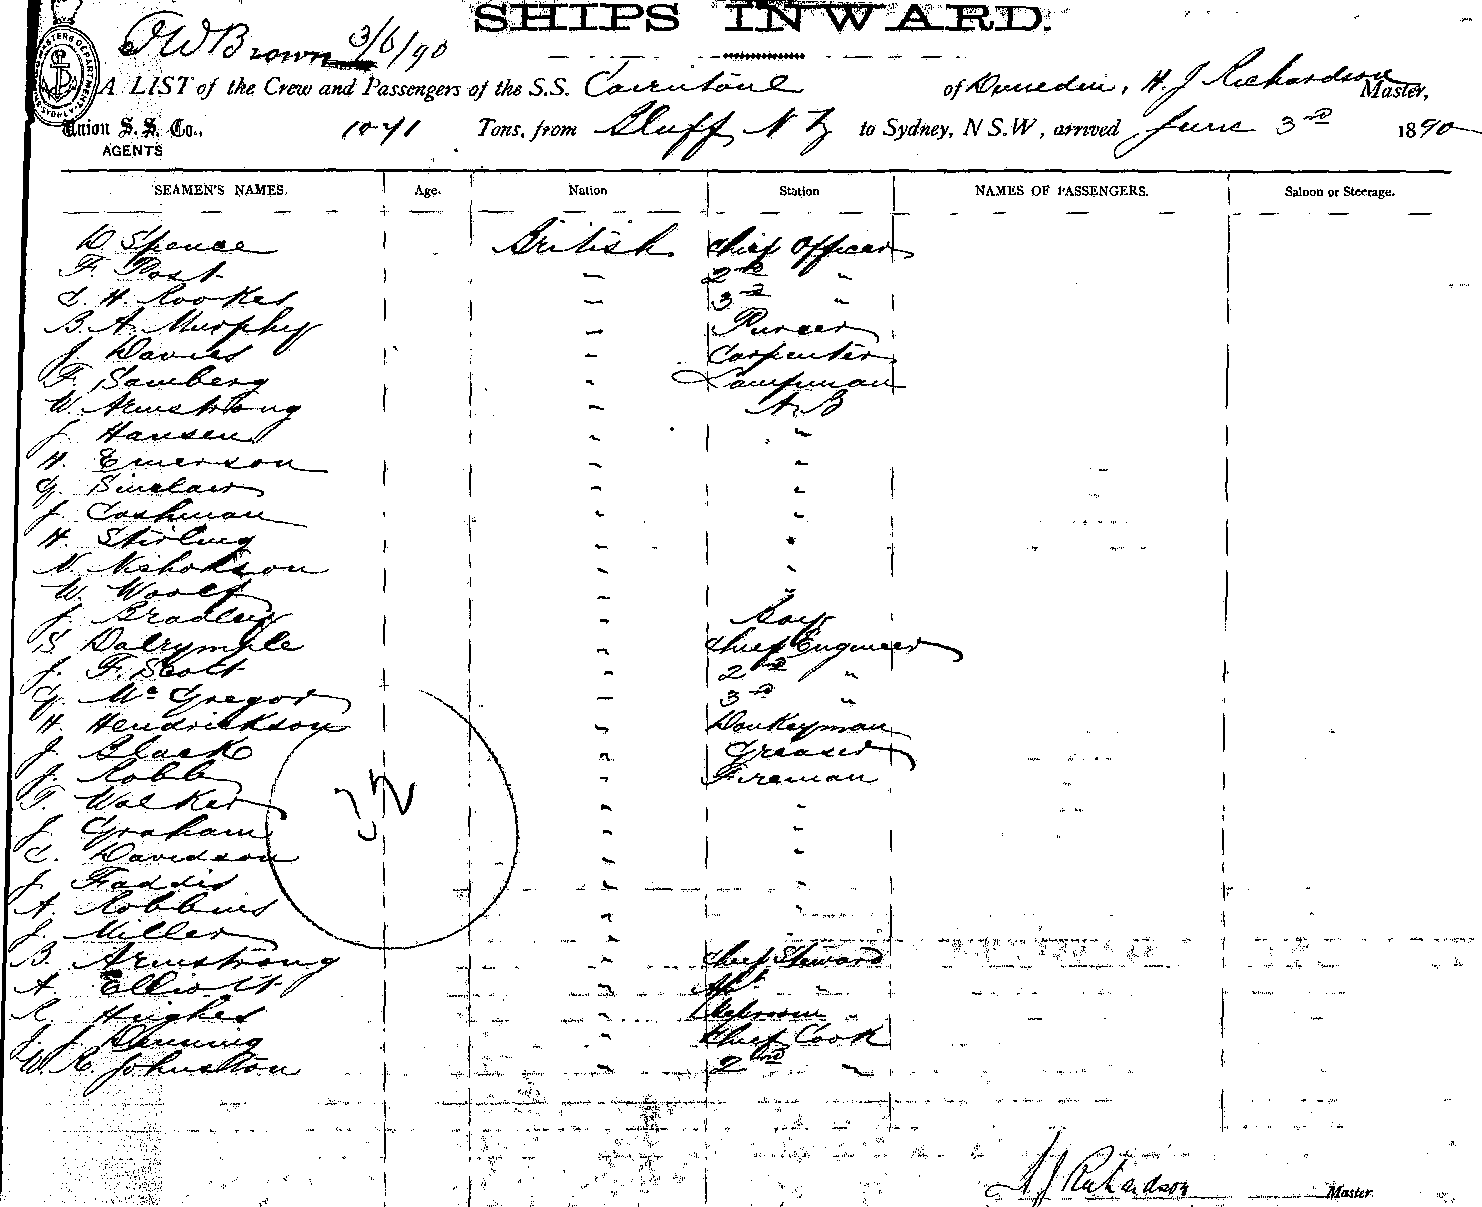 SHIPS INWARD.
J W Brown 3/6/90
A LIST of the Crew and Passengers of the S.S. of Dunedin, H. J Richardson Master,
Union S. S. Co., 1041 Tons, from Bluff N Z to Sydney, N S.W, arrived June 3rd 1890
AGENTS
SEAMEN'S NAMES. Age. Nation Station NAMES OF PASSENGERS. Saloon or Steerage.
D Spence British Chief Officer
F. Post " 2nd "
C. H. Rookes " 3rd "
B. A. Murphy " Purser
J. Davies " Carpenter
F. Samberg " Lampman
W. Armstrong " A.B
J. Hansen " "
H. Emerson " "
G. Sinclair " "
J. Cashman " "
H. Stirling " "
N. Nicholson " "
W. Woolf " "
J. Bradley " Boy
S Dalrymple " Chief Engineer
J. F. Scott " 2nd "
G. McGregor " 3rd "
H. Hendrickson " Donkeyman
J. Black " Greaser
J. Robb " Fireman
T. Walker " "
J. Graham " "
C. Davidson " "
J. Faddis " "
A. Robbins " "
J. Miller "
32
B. Armstrong " Chief Steward
A. Elliott " "
R. Hughes " "
J. J Denning " Chief Cook
W. R. Johnston " 2nd "
H J Richardson Master